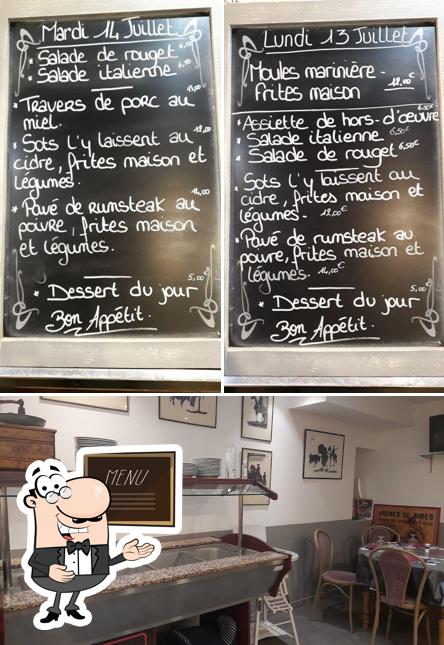 Mardi 14 Juillet
* Salade de rouget 6,50
* Salade italienne 6,50
13,00
* Travers de porc au
miel.
* Sots l'y laissent au 12,00
cidre, frites maison et
légumes.
14,00
* Pavé de rumsteak au
poivre, frites maison
et légumes.
5,00
* Dessert du jour
Bon Appétit.
Lundi 13 Juillet
Moules marinière -
Frites maison 12,00€
6,50€
* Assiette de hors-d'œuvre
* Salade italienne 6,50€
* Salade de rouget 6,50€
* Sots l'y laissent au
cidre, frites maison et
légumes - 12,00€
* Pavé de rumsteak au
poivre, frites maison et
légumes. 14,00€
5,00€
* Dessert du jour
Bon Appétit.
MENU
ARENES DE NIMES